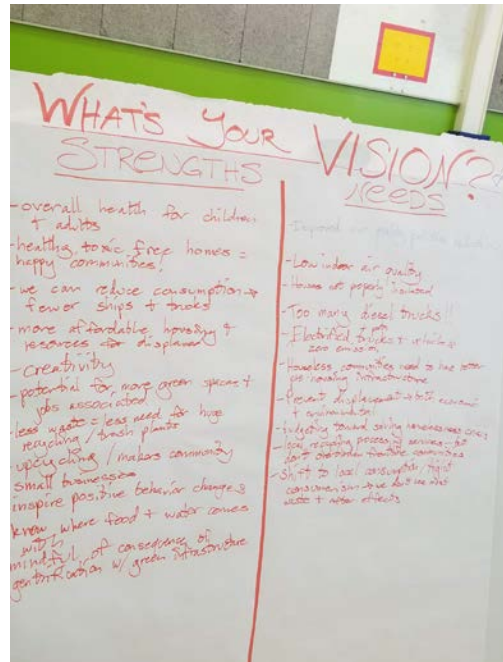 WHAT'S YOUR VISION?
STRENGTHS
- overall health for children
+ adults
- healthy, toxic free homes =
happy communities!
- we can reduce consumption →
fewer ships + trucks
- more affordable housing +
resources for displaced
- creativity
- potential for more green spaces +
jobs associated
- less waste = less need for huge
recycling / trash plants
upcycling / makers community
small businesses
inspire positive behavior changes
know where food + water comes
mindful of consequence of
gentrification w/ green infrastructure
NEEDS
- Improved air
- Low indoor air quality
- Houses not properly insulated
- Too many diesel trucks!!
- Electrified trucks +
zero emission
- Homeless communities need to have better
housing infrastructure
- Prevent displacement → both economic
+ environmental
- budgeting toward solving homelessness crisis
- local recycling processing services - but
don't overburden frontline communities
- Shift to local consumption / fight
consumerism →
waste + after effects